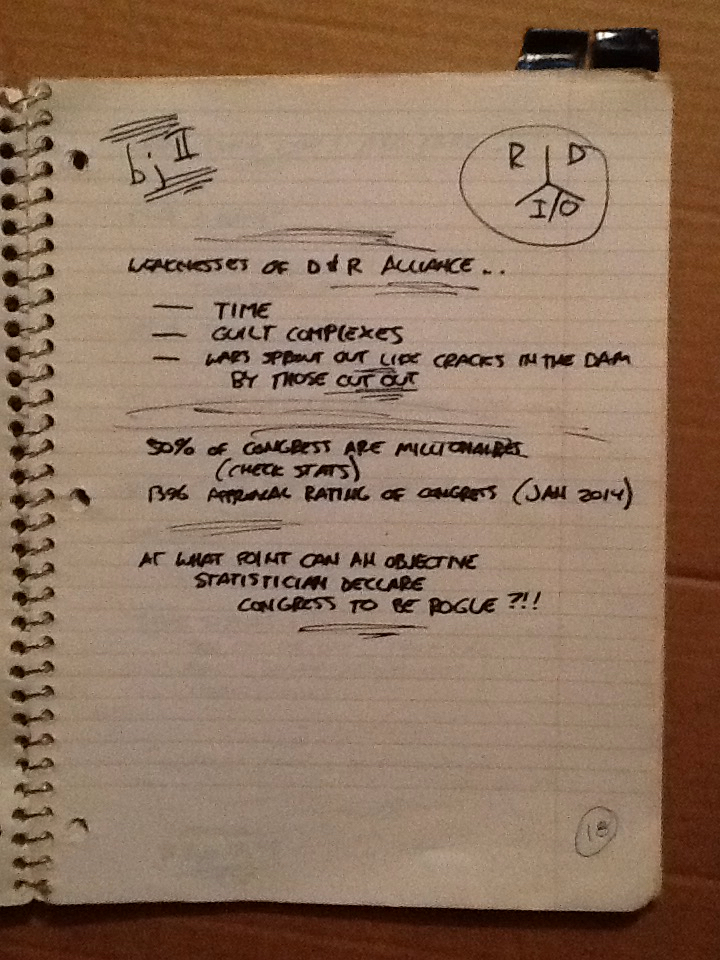 bj II
R | D
I/O
WEAKNESSES OF D & R ALLIANCE...
— TIME
— GUILT COMPLEXES
— WARS SPROUT OUT LIKE CRACKS IN THE DAM
BY THOSE CUT OUT
50% OF CONGRESS ARE MILLIONAIRES
(CHECK STATS)
13% APPROVAL RATING OF CONGRESS (JAN 2014)
AT WHAT POINT CAN AN OBJECTIVE
STATISTICIAN DECLARE
CONGRESS TO BE ROGUE ?!!
18